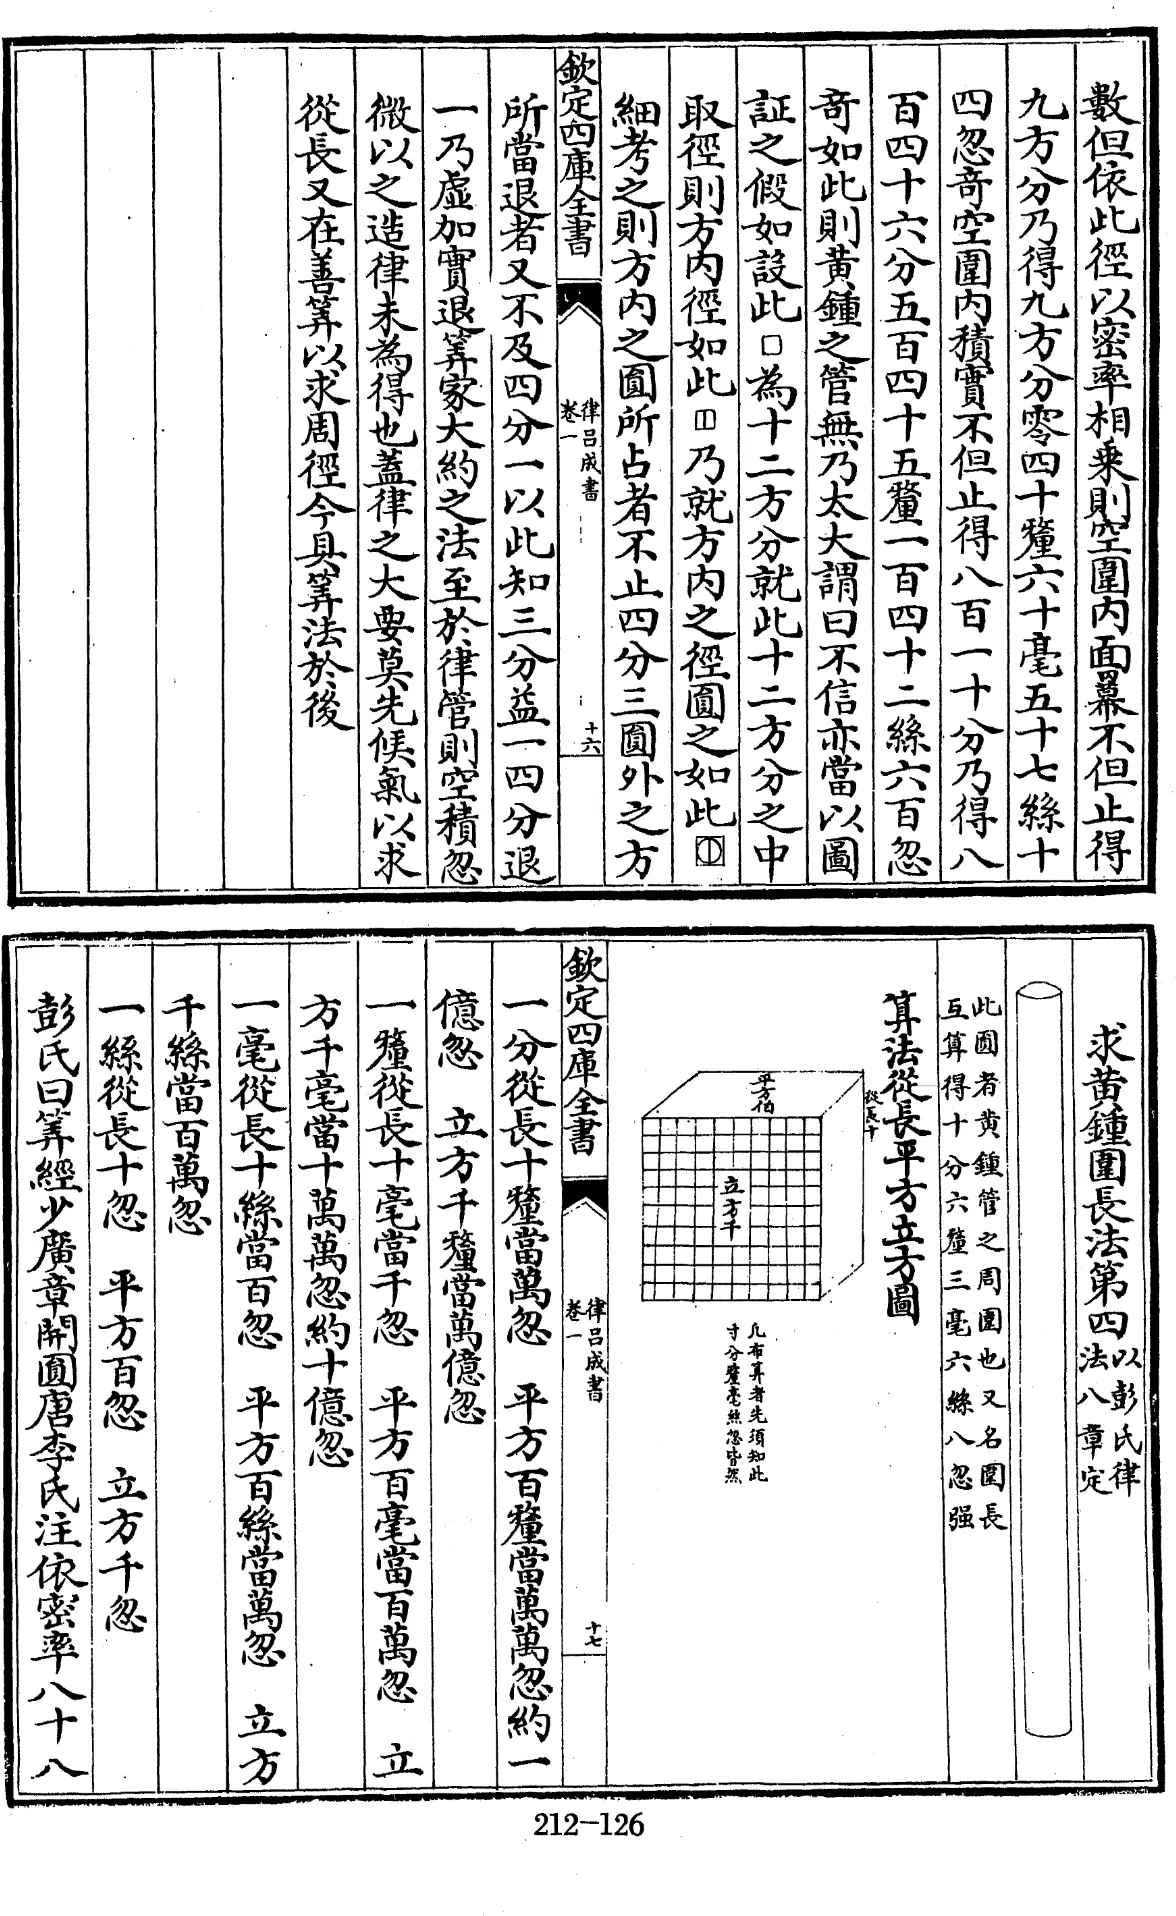 數但依此徑以密率相乘則空圍内面羃不但止得
九方分乃得九方分零四十釐六十毫五十七絲十
四忽竒空圍内積實不但止得八百一十分乃得八
百四十六分五百四十五釐一百四十二絲六百忽
竒如此則黄鍾之管無乃太大謂曰不信亦當以圖
証之假如設此□為十二方分就此十二方分之中
取徑則方内徑如此乃就方内之徑圓之如此
細考之則方内之圓所占者不止四分三圓外之方
欽定四庫全書
律吕成書
卷一
十六
所當退者又不及四分一以此知三分益一四分退
一乃虛加實退筭家大約之法至於律管則空積忽
微以之造律未為得也蓋律之大要莫先候氣以求
從長又在善筭以求周徑今具筭法於後
求黄鍾圍長法第四
以彭氏律
法八章定
此圓者黄鍾管之周圍也又名圍長
互算得十分六釐三毫六絲八忽强
算法從長平方立方圖
從長十
平方伯
立方千
凡布算者先須知此
寸分釐毫絲忽皆然
欽定四庫全書
律吕成書
卷一
十七
一分從長十釐當萬忽　平方百釐當萬萬忽約一
億忽　立方千釐當萬億忽
一釐從長十毫當千忽　平方百毫當百萬忽　立
方千毫當十萬萬忽約十億忽
一毫從長十絲當百忽　平方百絲當萬忽　立方
千絲當百萬忽
一絲從長十忽　平方百忽　立方千忽
彭氏曰筭經少廣章開圓唐李氏注依密率八十八
212-126